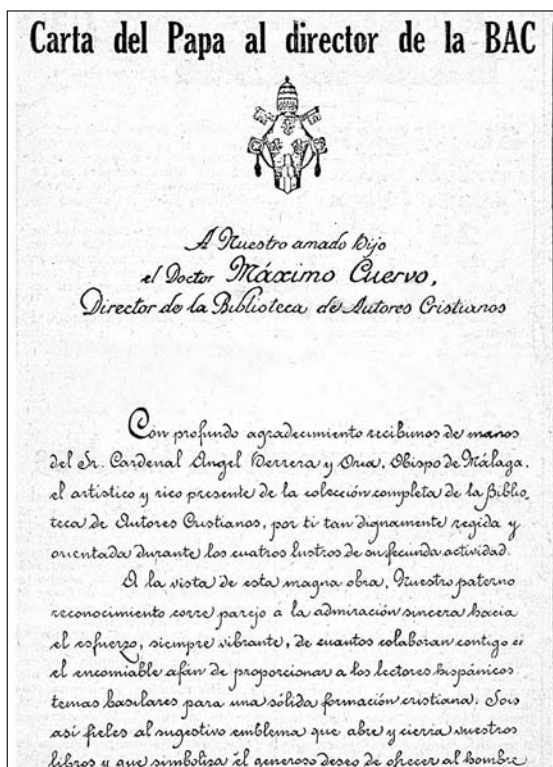 Carta del Papa al director de la BAC
A Nuestro amado hijo
el Doctor Máximo Cuervo,
Director de la Biblioteca de Autores Cristianos
Con profundo agradecimiento recibimos de manos
del Sr. Cardenal Angel Herrera y Oria, Obispo de Málaga,
el artistico y rico presente de la colección completa de la Biblio-
teca de Autores Cristianos, por ti tan dignamente regida y
orientada durante los cuatros lustros de su fecunda actividad.
A la vista de esta magna obra, Nuestro paterno
reconocimiento corre parejo a la admiración sincera hacia
el esfuerzo, siempre vibrante, de cuantos colaboran contigo en
el encomiable afán de proporcionar a los lectores hispánicos
temas basilares para una sólida formación cristiana. Sois
asi fieles al sugestivo emblema que abre y cierra vuestros
libros y que simboliza el generoso deseo de ofrecer al hombre